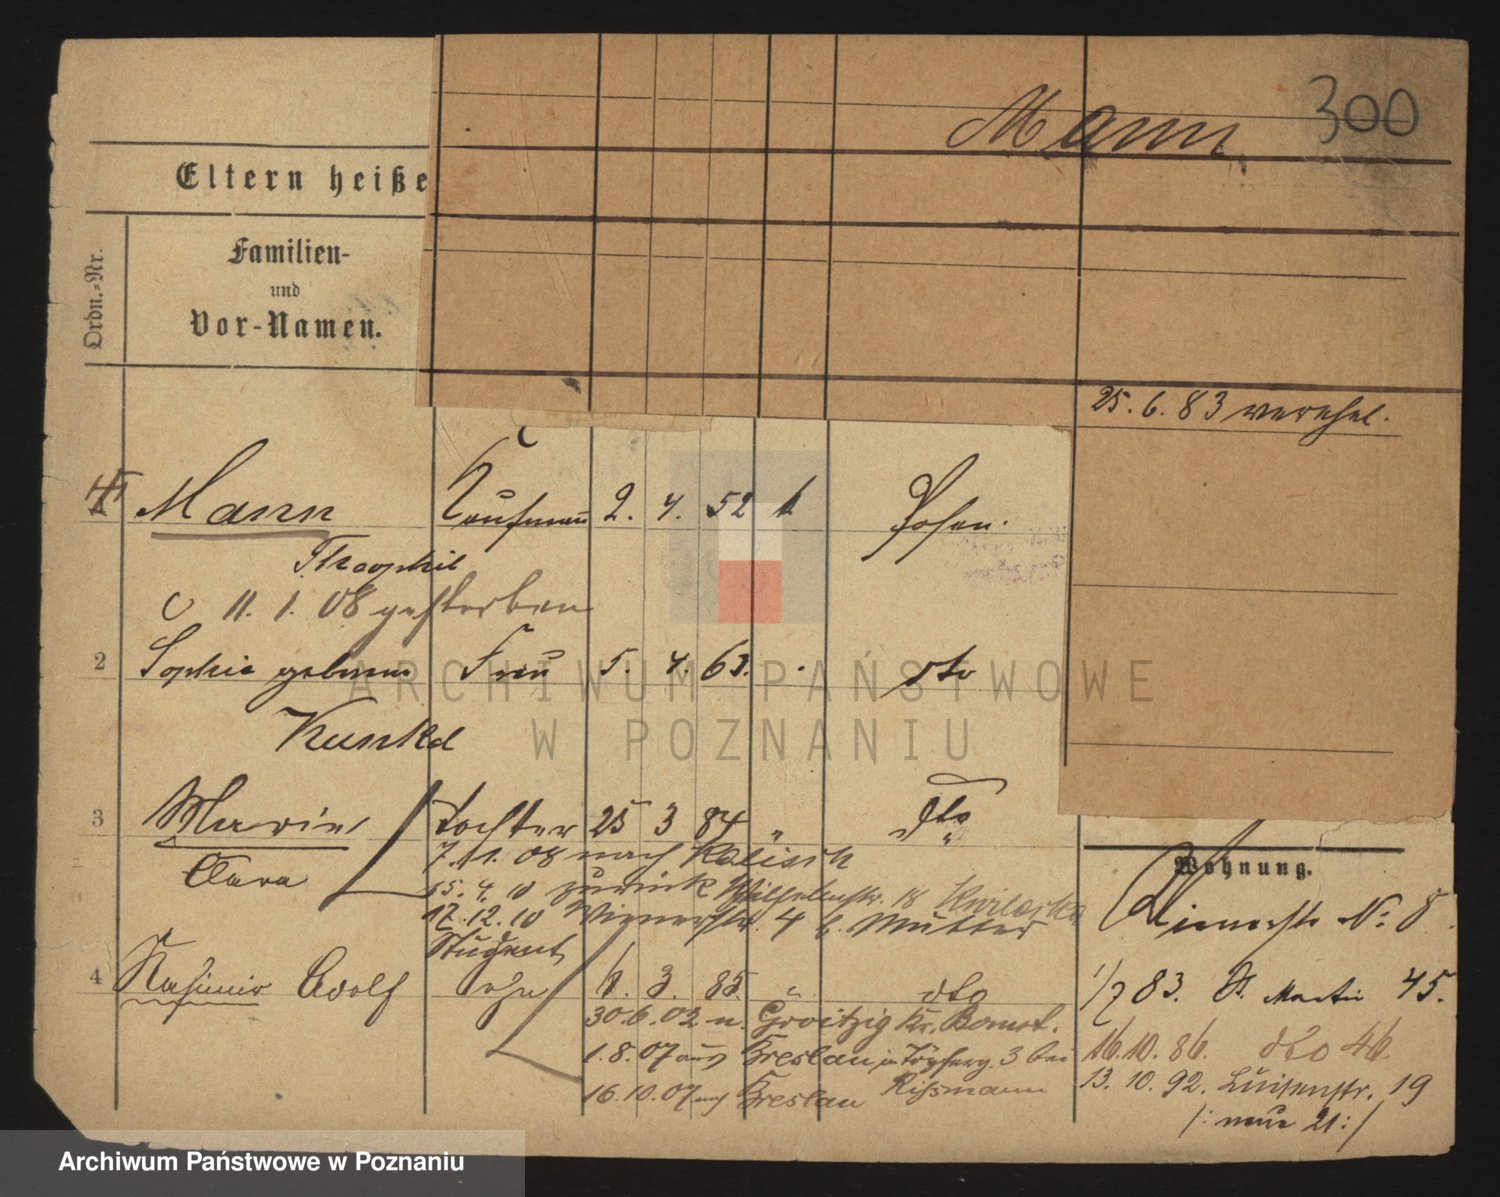 Mann
300
Eltern heiße
Ordn.-Nr.
Familien-
und
Vor-Namen.
25. 6. 83 verehel.
Mann Kaufmann 2. 4. 52 k Posen.
Theophil
11. 1. 08 gestorben
2 Sophie geborene Frau 5. 4. 63. dto
Kunkel
3 Marie Tochter 25 3 84 " dto
Clara 7. 11. 08 nach Kalisch
15. 4. 10 zurück Wilhelmstr. 18
17. 12. 10 Wienerstr. 4 b. Mutter
Wohnung.
Bismarckstr No 8
Student
4 Kasimir Adolf Sohn 1. 3. 85. " dto
1/7 83. St. Martin 45.
30. 6. 02 n. Groitzig Kr. Bomst.
16. 10. 86. dto 46.
1. 8. 07 aus Breslau 3 bei
Rissmann
13. 10. 92. Luisenstr. 19
16. 10. 07 nach Breslau
/: neue 21 :/
ARCHIWUM PAŃSTWOWE
W POZNANIU
Archiwum Państwowe w Poznaniu